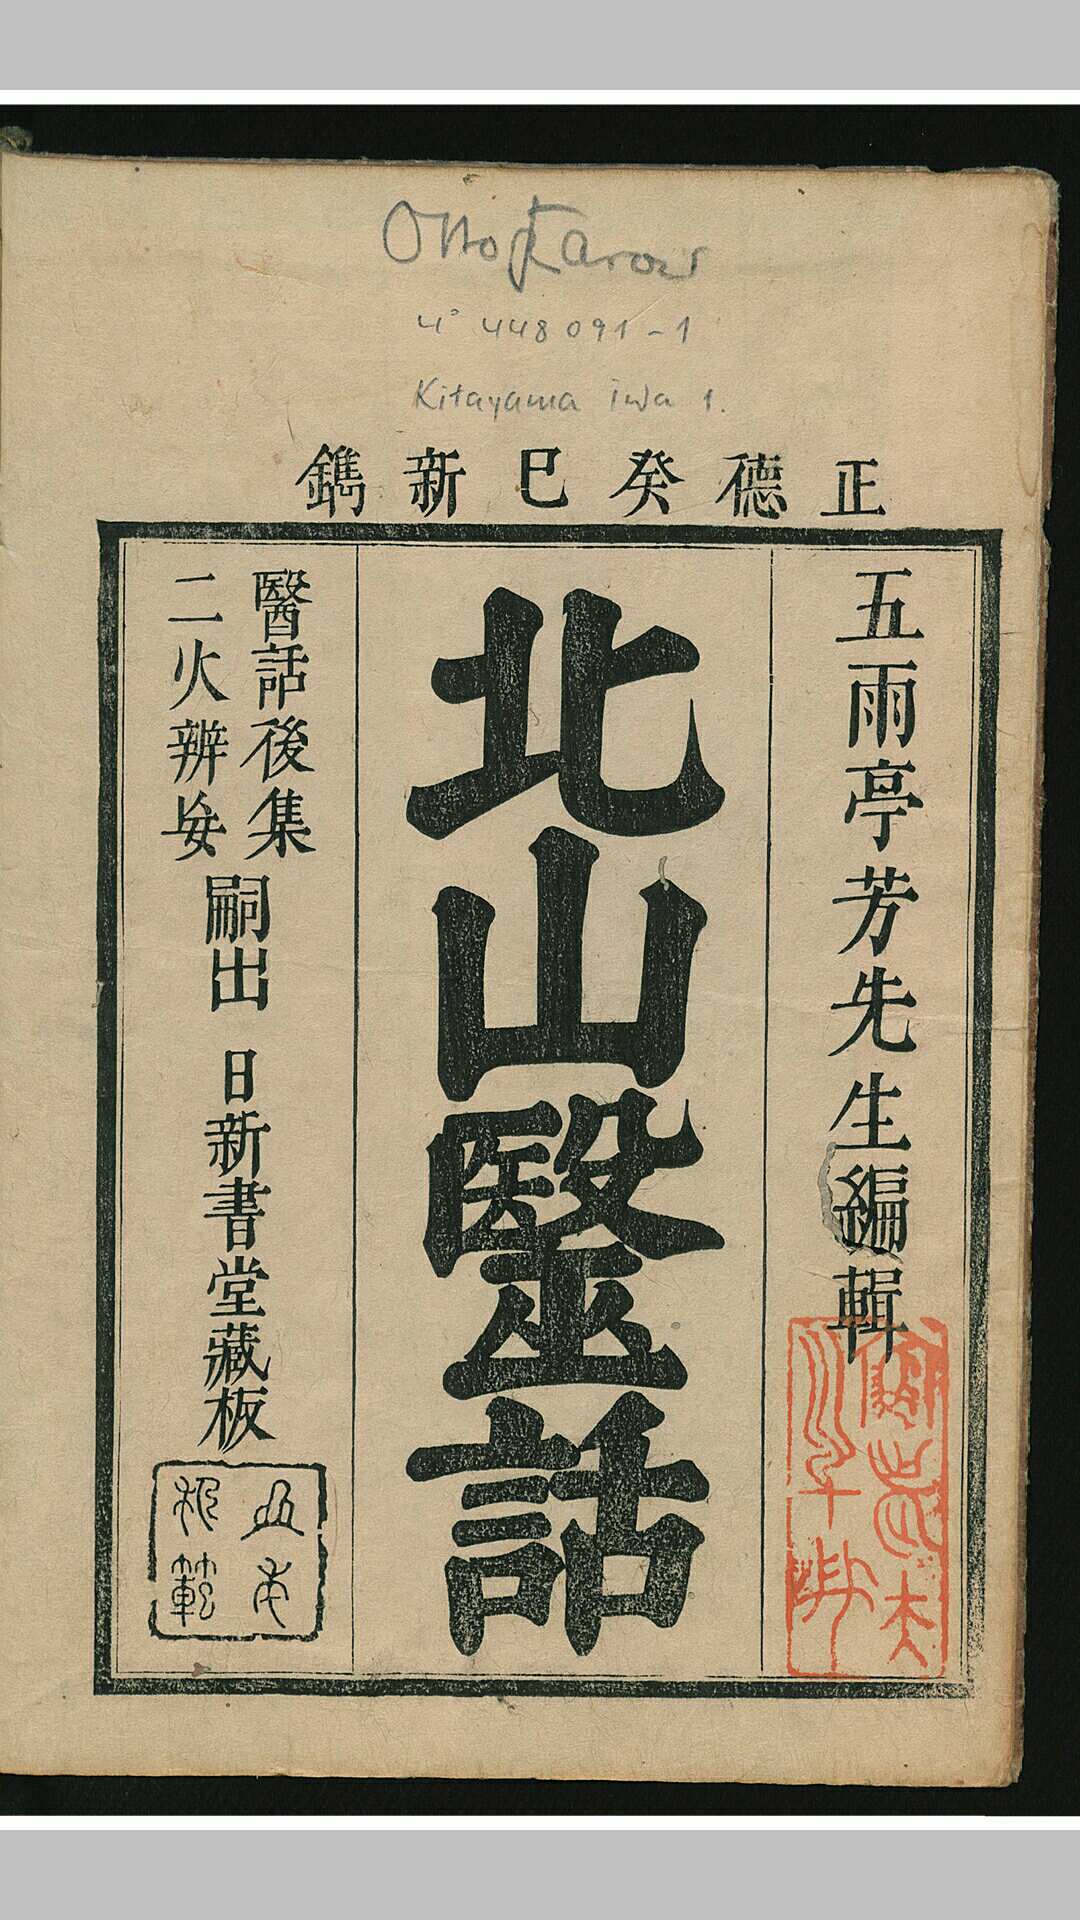 Otto Karow
4° 448091-1
Kitayama iwa 1.
正德癸巳新鐫
五雨亭芳先生編輯
北山醫話
醫話後集
二火辨妄
嗣出
日新書堂藏板